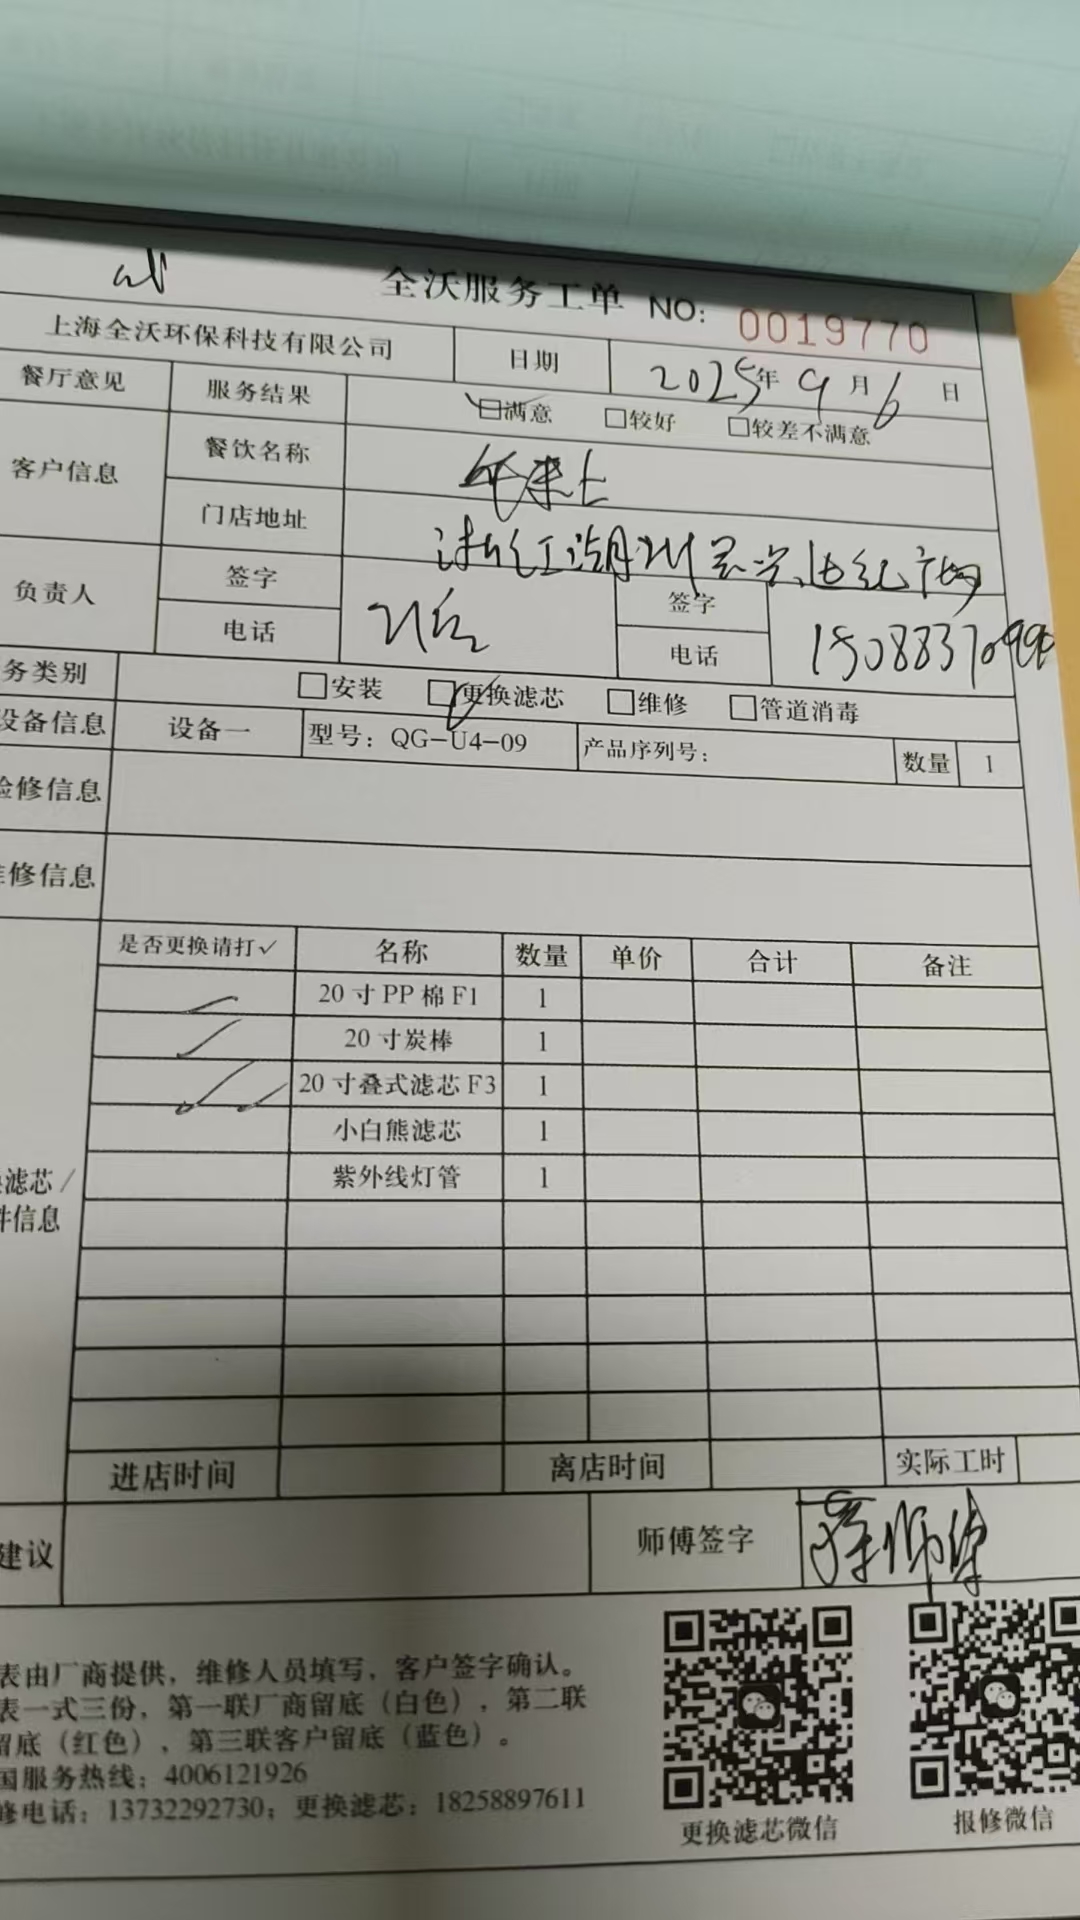 全沃服务工单 NO: 0019770
上海全沃环保科技有限公司 日期 2025年 9月 6日
餐厅意见 服务结果 □满意 □较好 □较差不满意
客户信息 餐饮名称
门店地址 浙江湖州 世纪广场
负责人 签字 签字
电话 电话 15088370
务类别 □安装 □更换滤芯 □维修 □管道消毒
设备信息 设备一 型号：QG-U4-09 产品序列号： 数量 1
检修信息
维修信息
是否更换请打✓ 名称 数量 单价 合计 备注
✓ 20寸PP棉F1 1
✓ 20寸炭棒 1
✓ 20寸叠式滤芯F3 1
✓ 小白熊滤芯 1
紫外线灯管 1
滤芯/
件信息
进店时间 离店时间 实际工时
建议 师傅签字 薛师傅
表由厂商提供，维修人员填写，客户签字确认。
表一式三份，第一联厂商留底（白色），第二联
留底（红色），第三联客户留底（蓝色）。
国服务热线：4006121926
修电话：13732292730；更换滤芯：18258897611
更换滤芯微信 报修微信